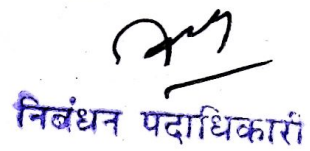 निबंधन पदाधिकारी